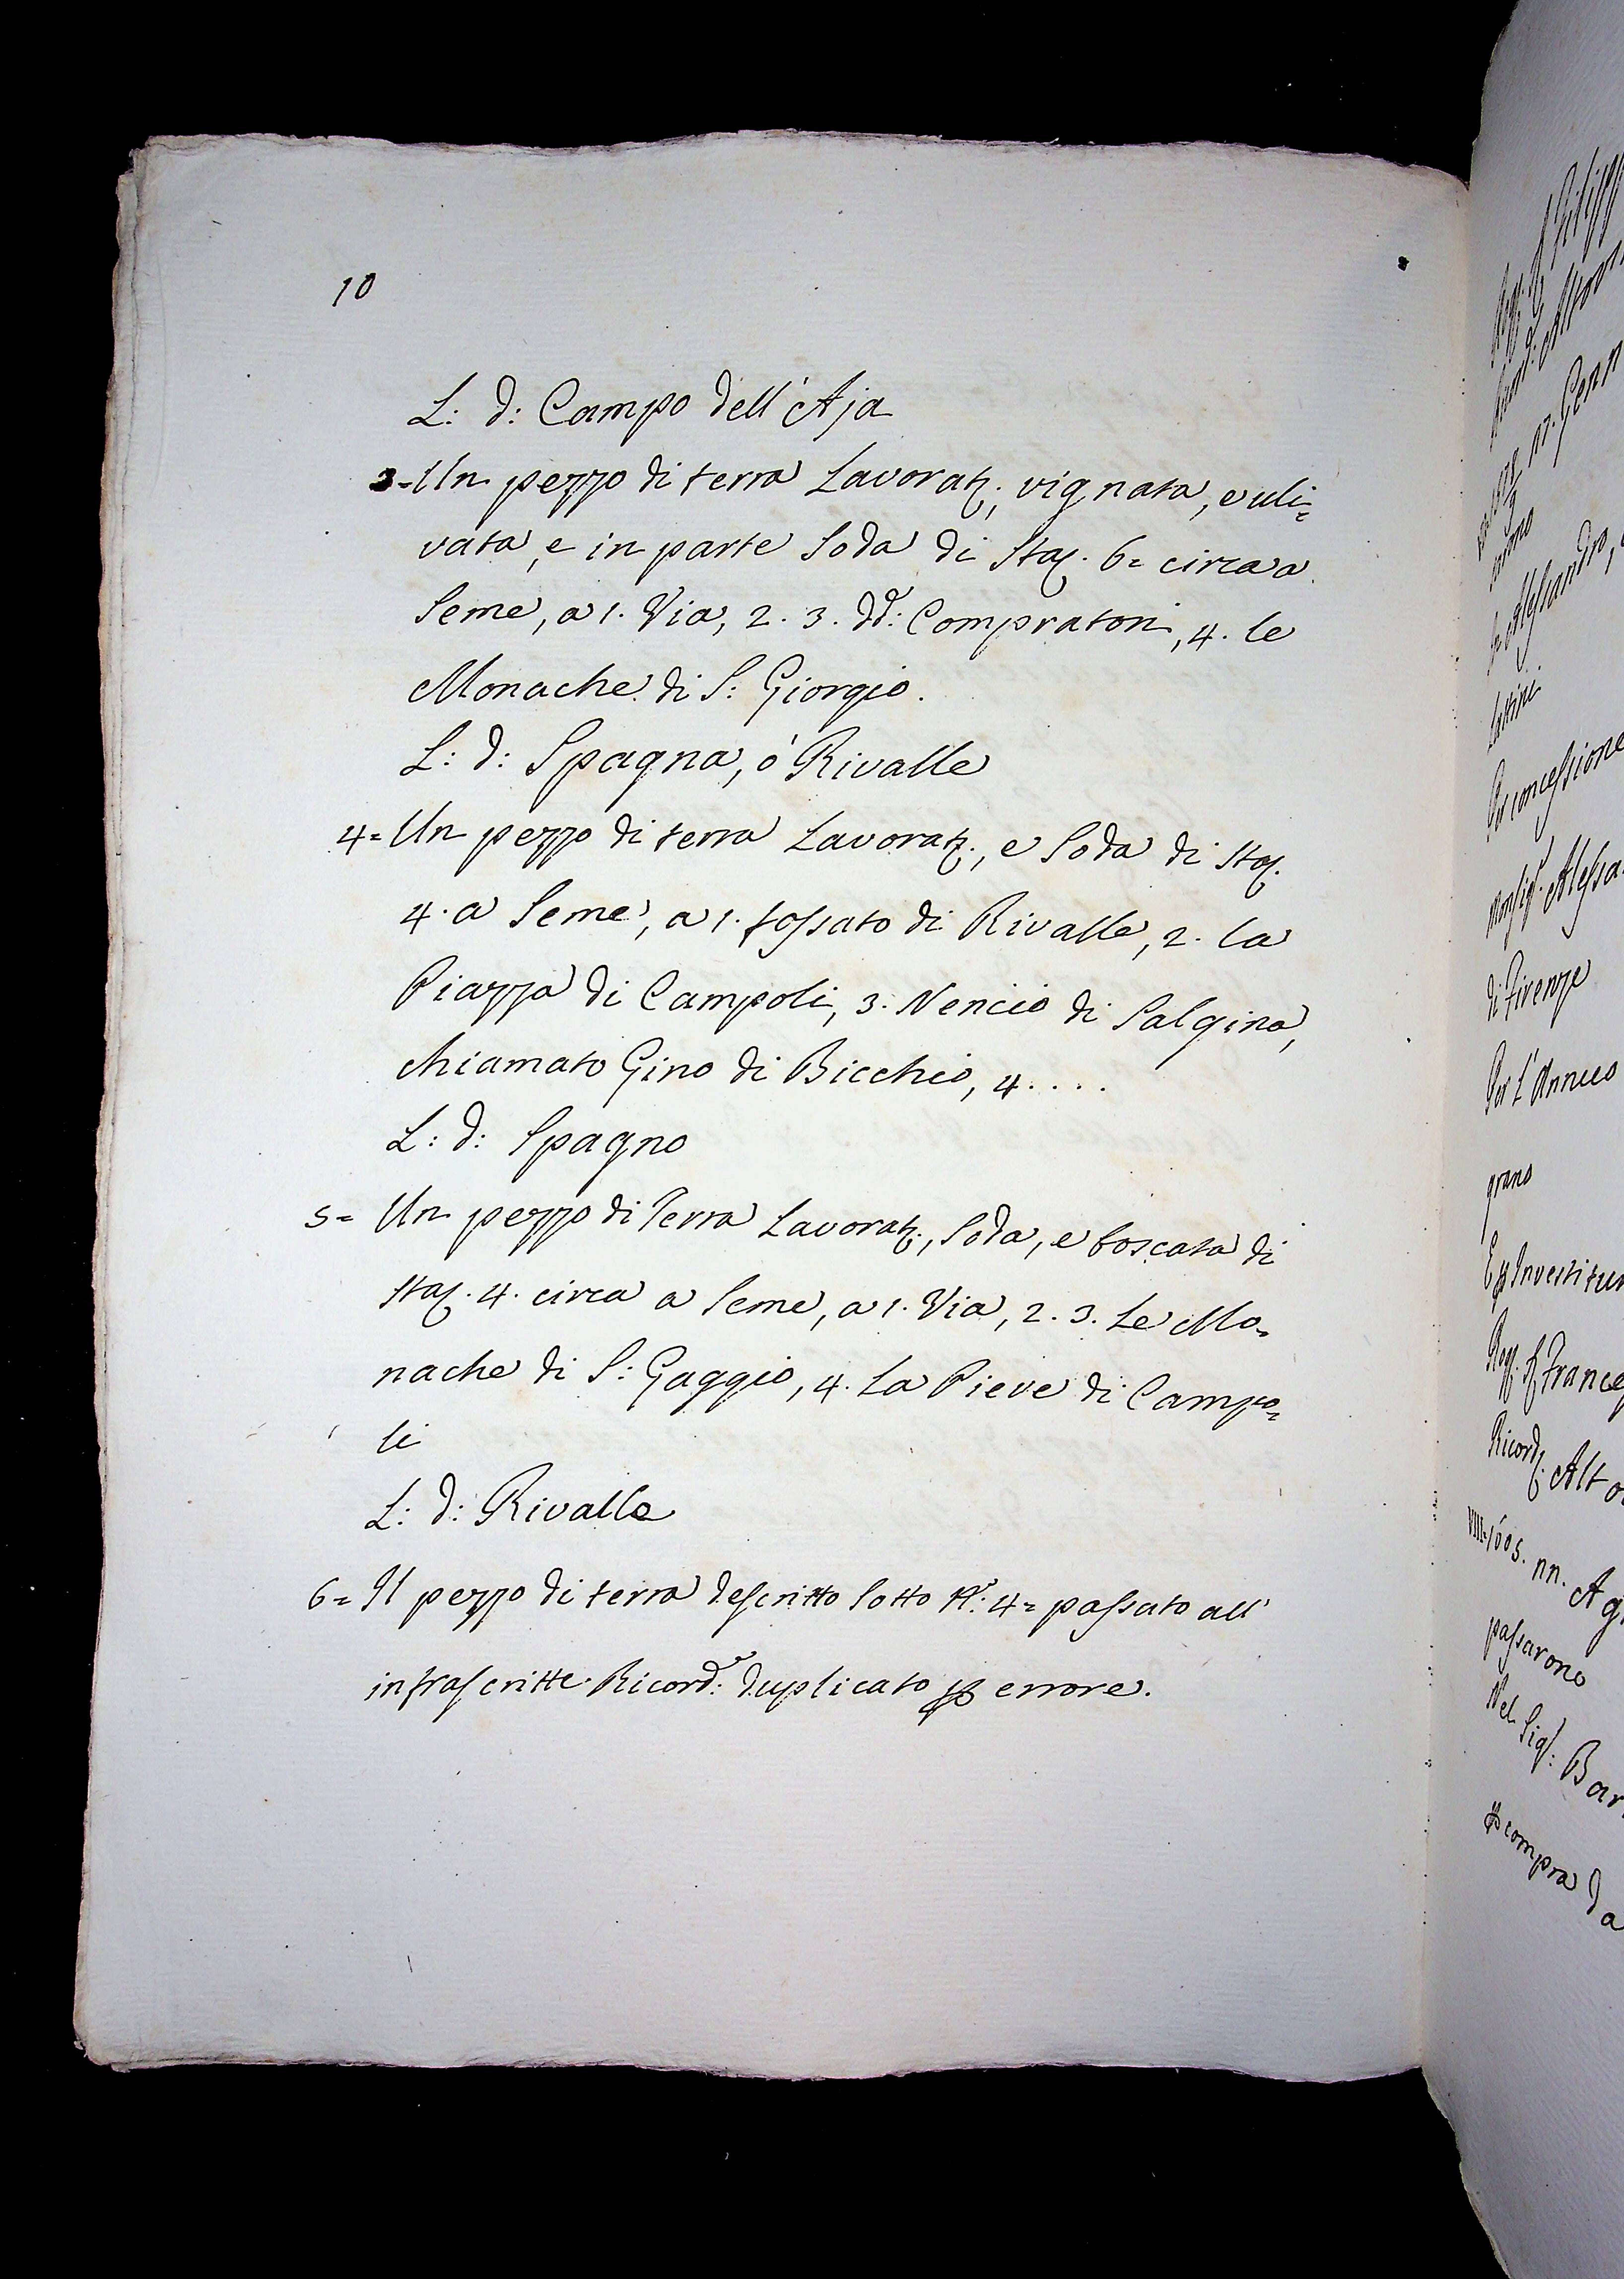 10
L: d: Campo dell'Aja
3= Un pezzo di terra Lavorat:, vignata, e uli=
vata, e in parte Soda di Staj. 6= circa a
Seme, a 1. Via, 2. 3. dd: Compratori, 4. le
Monache di S: Giorgio.
L: d: Spagna, ò Rivalle
4= Un pezzo di terra Lavorat:, e Soda di Staj.
4. a Seme, a 1. fossato di Rivalle, 2. la
Piazza di Campoli, 3. Nencio di Salgino,
chiamato Gino di Bicchio, 4....
L: d: Spagno
5= Un pezzo di Terra Lavorat:, Soda, e boscata di
Staj. 4. circa a Seme, a 1. Via, 2. 3. Le Mo=
nache di S: Gaggio, 4. La Pieve di Campo=
li
L: d: Rivalle
6= Il pezzo di terra descritto Sotto N:° 4= passato all'
infrascritte Ricord: duplicato p errore.
Alessandro,
Lattini
Per concessione
Alessa
di Firenze
Per L'Annuo
grano
Ep Investitur
Frances
Ricord: Alto
VIII=1605. nn. Ag
passarono
Nel Sig: Bar
p compra da